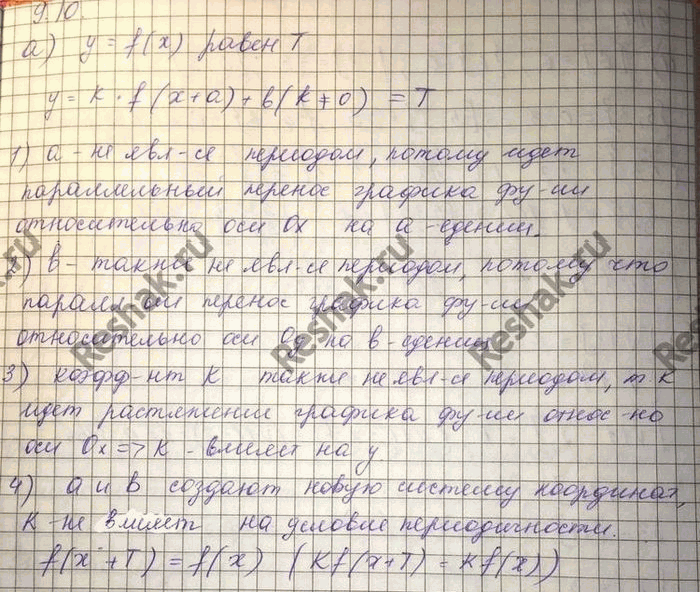 9.10.
а) y = f(x) равен T
y = k · f(x+a) + b (k ≠ 0) = T
1) a - не явл-ся периодом, потому идет
параллельный перенос графика фу-ии
относительно оси Ox на a - едениц.
2) b - также не явл-ся периодом, потому что
паралл-ый перенос графика фу-ии
относительно оси Oy на b - едениц
3) коэфф-нт K также не явл-ся периодом, т.к
идет растяжении графика фу-ии относ-но
оси Ox => K - влияет на y
4) a и b создают новую систему координат,
K - не влияет на условие периодичности.
f(x + T) = f(x) (Kf(x+T) = Kf(x))
Reshak.ru
Reshak.ru
Reshak.ru